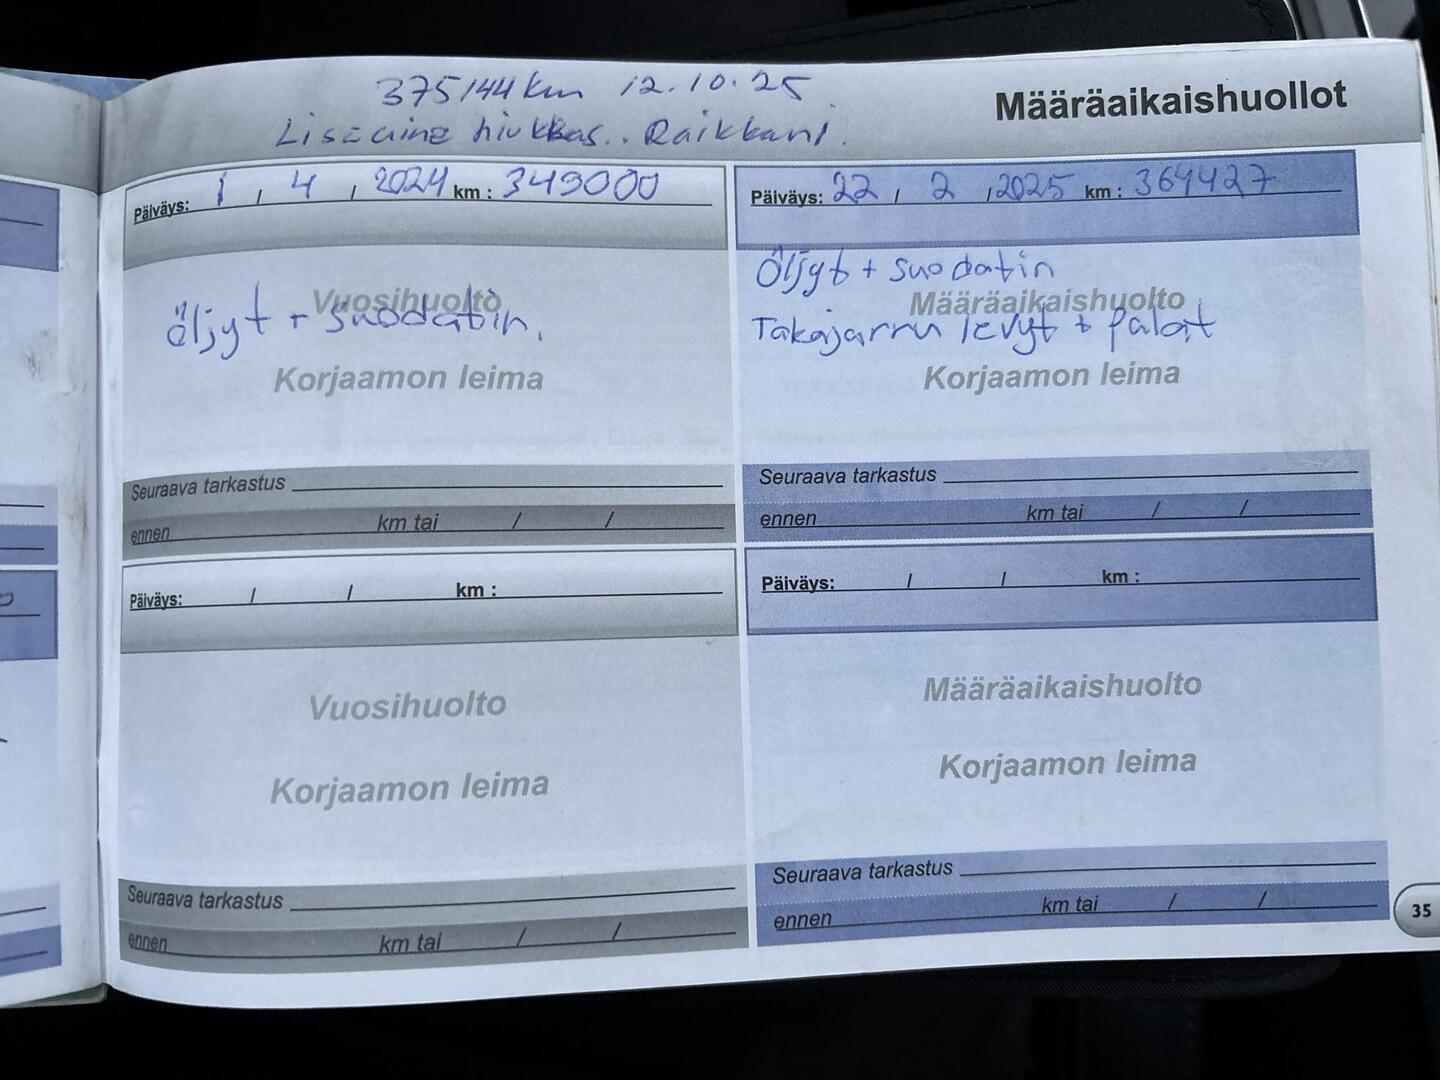 375144 km 12.10.25
Lisäaine hiukkas.. Raikkani.
Määräaikaishuollot
Päiväys: 1 / 4 / 2024 km : 349000
Vuosihuolto
Öljyt + suodatin.
Korjaamon leima
Seuraava tarkastus
ennen km tai / /
Päiväys: 22 / 2 / 2025 km : 364427
Öljyt + suodatin
Määräaikaishuolto
Takajarru levyt + palat
Korjaamon leima
Seuraava tarkastus
ennen km tai / /
Päiväys: / / km :
Vuosihuolto
Korjaamon leima
Seuraava tarkastus
ennen km tai / /
Päiväys: / / km :
Määräaikaishuolto
Korjaamon leima
Seuraava tarkastus
ennen km tai / /
35